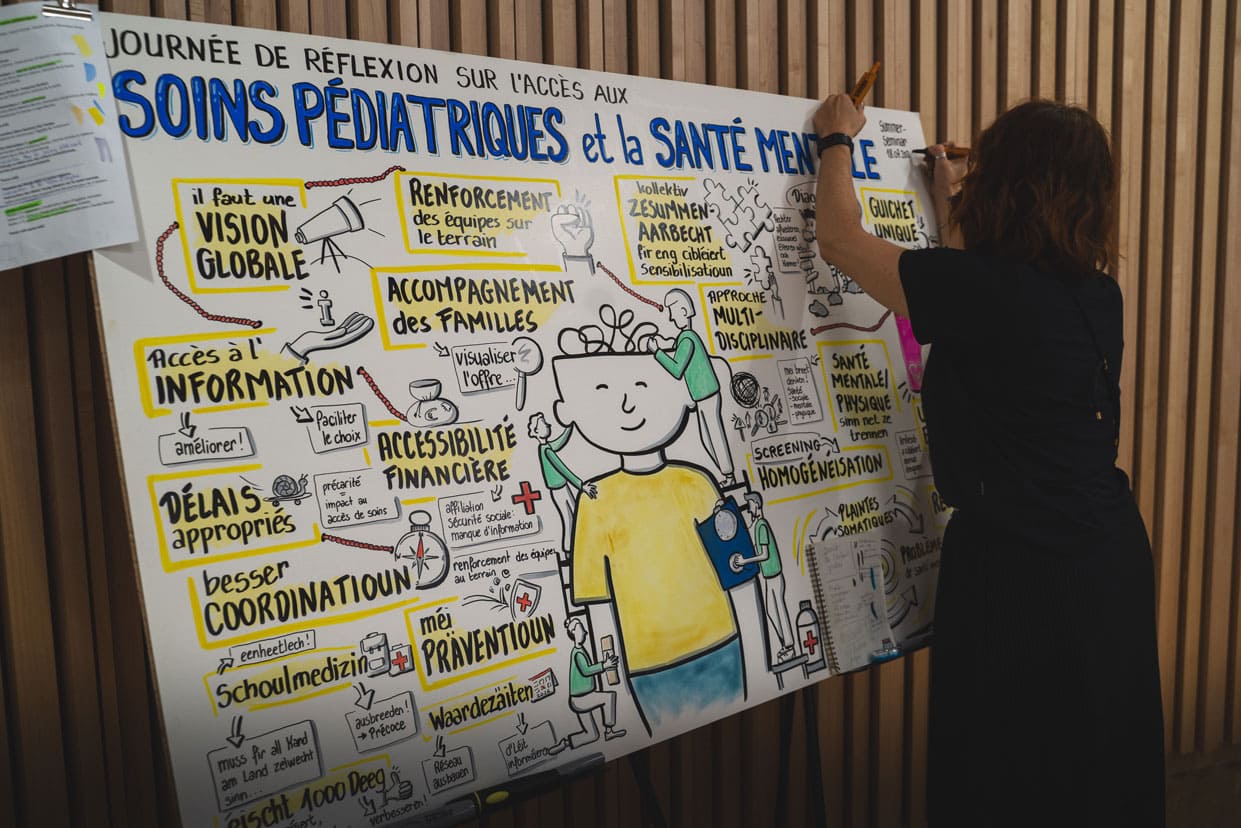 JOURNÉE DE RÉFLEXION SUR L'ACCÈS AUX
SOINS PÉDIATRIQUES et la SANTÉ MENTALE
Summer-
Seminar
il faut une
VISION
GLOBALE
RENFORCEMENT
des équipes sur
le terrain
kollektiv
ZESUMMEN-
AARBECHT
fir eng cibléiert
Sensibilisatioun
GUICHET
UNIQUE
ACCOMPAGNEMENT
des FAMILLES
visualiser
l'offre...
APPROCHE
MULTI-
DISCIPLINAIRE
Accès à l'
INFORMATION
améliorer!
Faciliter
le choix
ACCESSIBILITÉ
FINANCIÈRE
précarité
=
impact au
accès de soins
affiliation
sécurité sociale:
manque d'information
SANTÉ
MENTALE/
PHYSIQUE
sinn net ze
trennen
santé
- sociale
- mentale
- physique
SCREENING
HOMOGÉNEISATION
DÉLAIS
appropriés
besser
COORDINATIOUN
renforcement des équipes
au terrain
PLAINTES
SOMATIQUES
méi
PRÄVENTIOUN
eenheetlech!
Schoulmedizin
ausbreeden!
→ Précoce
muss fir all Kand
am Land zelwecht
sinn...
Waardezäiten
Réseau
ausbauen
d'Leit
informéieren
1000 Deeg
verbesseren!